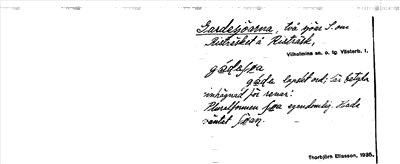 Gardesjöarna, två sjöar S. om
Risträsket å Risträsk,
Vilhelmina sn. o. tg. Västerb. l.
gáda
gáda lapskt ord; lär betyda
inhägnad för renar.
Pluralformen egendomlig. Hade
väntat
Thorbjörn Eliasson, 1935.